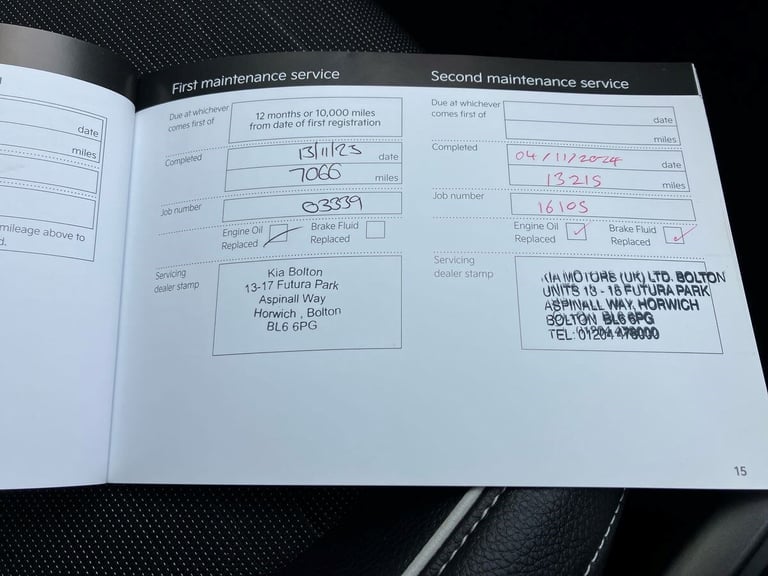 date
miles
mileage above to
d.
First maintenance service
Due at whichever
comes first of
12 months or 10,000 miles
from date of first registration
Completed
13/11/23 date
7066 miles
Job number
03339
Engine Oil
Replaced
Brake Fluid
Replaced
Servicing
dealer stamp
Kia Bolton
13-17 Futura Park
Aspinall Way
Horwich , Bolton
BL6 6PG
Second maintenance service
Due at whichever
comes first of
date
miles
Completed
04/11/2024 date
13215 miles
Job number
16105
Engine Oil
Replaced
Brake Fluid
Replaced
Servicing
dealer stamp
KIA MOTORS (UK) LTD. BOLTON
UNITS 13 - 18 FUTURA PARK
ASPINALL WAY, HORWICH
BOLTON BL6 6PG
TEL: 01204 478000
15